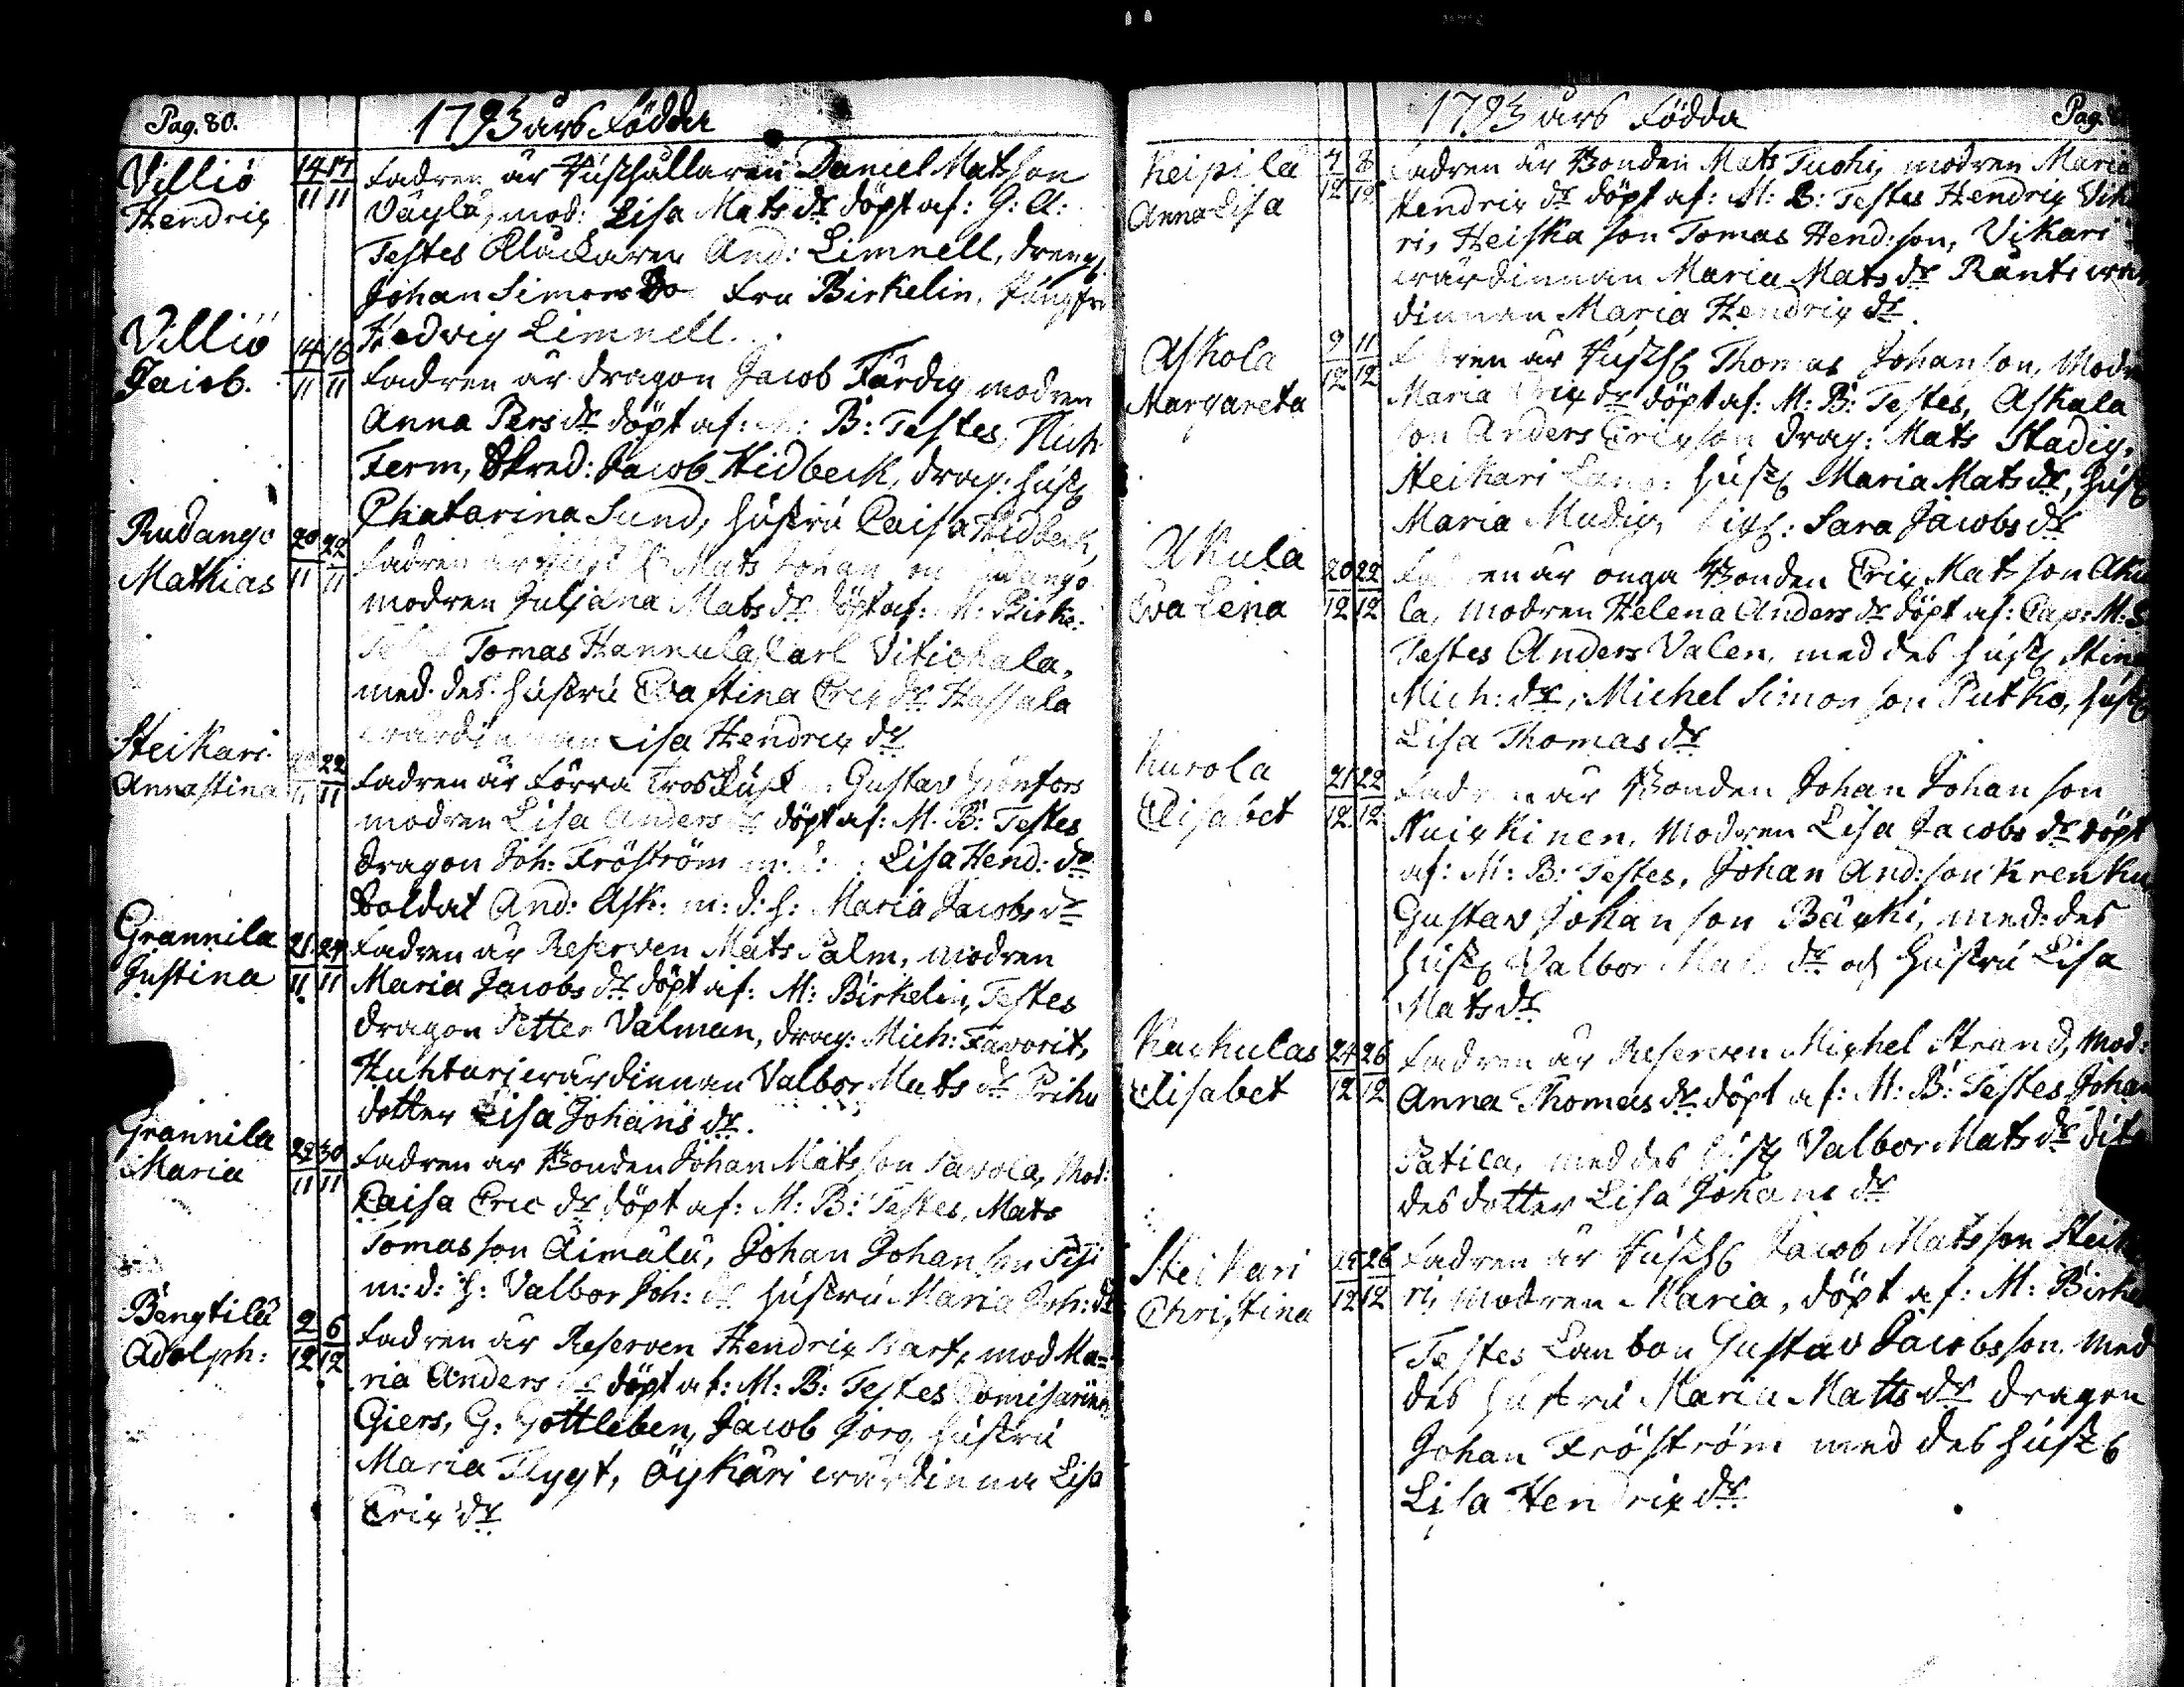 Pag. 80.
1793 års Födda
Villiö
Hendrix
14 17
11 11
Fadren är Rusthållaren Daniel Matsson
Väylä, mod: Lisa Mats dr döpt af: G: A:
Testes Klåckaren And: Limnell, dreng
Johan Simons So Fru Birkelin, Jungfru
Hedvig Limnell.
Villiö
Jacob.
14 16
11 11
Fadren är dragon Jacob Färdig modren
Anna Pers dr döpt af: M: B: Testes, Mich
Ferm, Skred: Jacob Hidbeck, drag: hust
Chatarina Sund, hustru Caisa Hidbeck,
Rudango
Mathias
20 22
11 11
Fadren är Mats Johan
modren Juljana Mats dr döpt af: M: Birke:
Testes Tomas Hannula, Carl Vitichala,
med des hustru Eva Stina Erix dr Hassala
wärdinnan Lisa Hendrix dr
Heikari
Anna Stina
22
11 11
Fadren är förra Gustav Grönfors
modren Lisa Anders dr döpt af: M: B: Testes
dragon Joh: Fröström Lisa Hend: dr
Soldat And: Ask: m: d: h: Maria Jacobs dr
Grannila
Justina
21 24
11 11
Fadren är Reserven Mats Palm, modren
Maria Jacobs dr döpt af: M: Birkelin, Testes
dragon Petter Valman, drag: Mich: Favorit,
Huhtari wärdinnan Valbor Mats dr Prihu
dotter Lisa Johans dr.
Grannila
Maria
29 30
11 11
Fadren är Bonden Johan Mats son Pavola, Mod:
Caisa Eric dr döpt af: M: B: Testes, Mats
Tomas son Äimälä, Johan Johan son
m: d: h: Valbor Joh: dr hustru Maria Joh: dr
Bengtilä
Adolph:
2 6
12 12
Fadren är Reserven Hendrix mod Ma=
ria Anders dr döpt af: M: B: Testes
Giers, G: Gottleben, Jacob Jorg, hustru
Maria Flygt, Öykäri wärdinna Lisa
Erix dr
1793 års Födda
Pag.
Keipilä
Anna Lisa
7 8
12 12
Fadren är Bonden Mats Tuohi, modren Maria
Hendrix dr döpt af: M: B: Testes Hendrix Vik
ri, Heiska son Tomas Hend: son, Vikari
wärdinnan Maria Mats dr Ränts wär
dinnan Maria Hendrix dr.
Askola
Margareta
9 11
12 12
Fadren är Rusth Thomas Johan son, Modr
Maria Erix dr döpt af: M: B: Testes, Askala
son Anders Erix son drag: Mats Stadig,
Heikari hust Maria Mats dr, hust
Maria Mudig, Sara Jacobs dr
Akula
Eva Lena
20 22
12 12
Fadren är onga Bonden Erix Mats son Aku
la, Modren Helena Anders dr döpt af: Cap: M: S
Testes Anders Valen, med des hust Stina
Mich: dr, Michel Simon son Putko, hust
Lisa Thomas dr
Kurola
Elisabet
21 22
12 12
Fadren är Bonden Johan Johan son
Nuixkinen, Modren Lisa Jacobs dr döpt
af: M: B: Testes, Johan And: son Krenku
Gustav Johan son Bäxki, med: des
hust Valbor Mats dr och hustru Lisa
Mats dr
Kaukulas
Elisabet
24 26
12 12
Fadren är Reserven Michel Strand, Mod:
Anna Thomas dr döpt af: M: B: Testes Johan
Patila, med des hust Valbor Mats dr dit
des dotter Lisa Johans dr
Heikari
Christina
25 26
12 12
Fadren är Rusth Jacob Matsson Heik
ri, modren Maria, döpt af: M: Birke
Testes Lanbon Gustav Jacobsson, Med
des hustru Maria Matts dr dragon
Johan Fröström med des hust
Lisa Hendrix dr